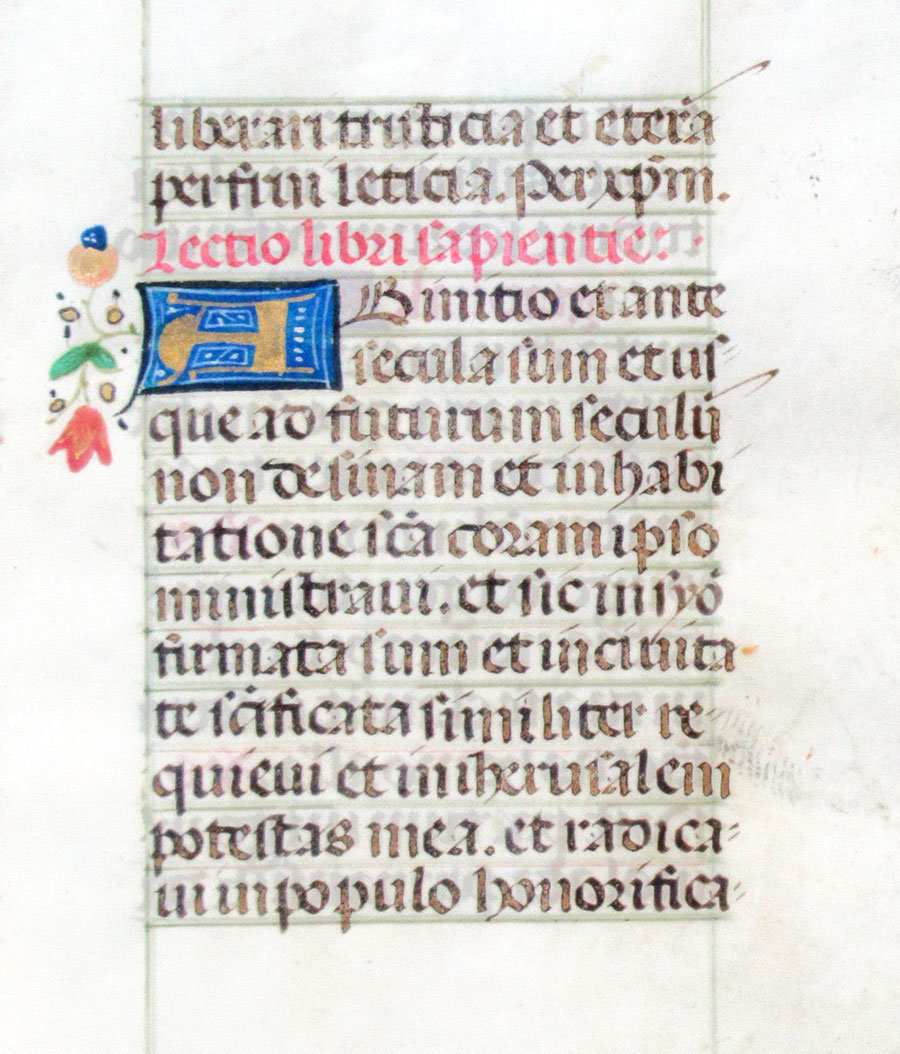 liberari tristicia et eter̃a
perfrui leticia. Per xp̄m.
Lectio libri sapientie.
AB initio et ante
secula sum et us-
que ad futurum seculū
non desinam et in habi
tatione scā coram ipso
ministraui. et sic in syō
firmata sum et in ciuita
te scīficata similiter re-
quieui et in iherusalem
potestas mea. et radica-
ui in populo honorifica-